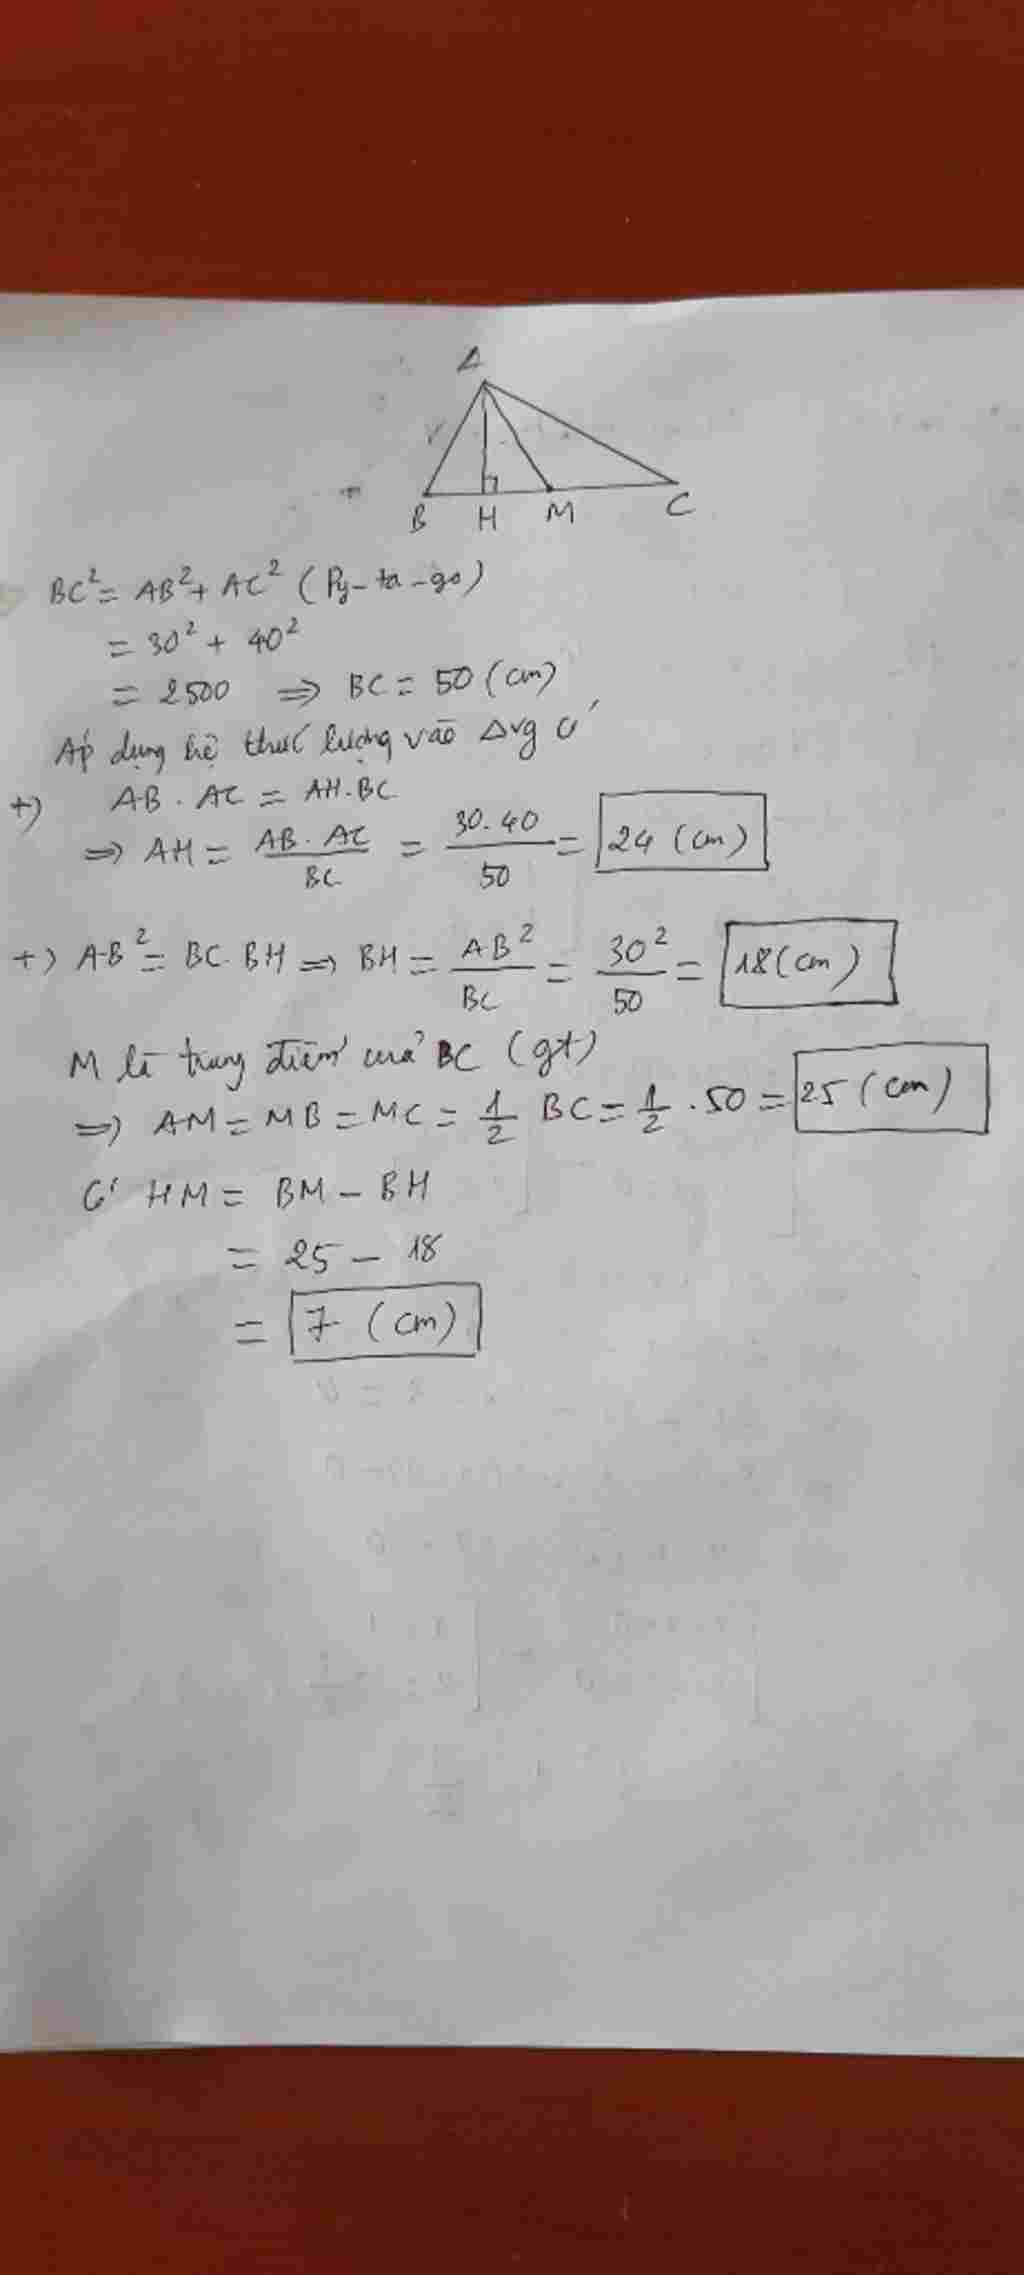 A
B H M C
BC² = AB² + AC² (Py-ta-go)
= 30² + 40²
= 2500 => BC = 50 (cm)
Áp dụng hệ thức lượng vào Δvg có
+) AB . AC = AH . BC
=> AH = AB . AC / BC = 30.40 / 50 = 24 (cm)
+) AB² = BC . BH => BH = AB² / BC = 30² / 50 = 18 (cm)
M là trung điểm của BC (gt)
=> AM = MB = MC = 1/2 BC = 1/2 . 50 = 25 (cm)
Có HM = BM - BH
= 25 - 18
= 7 (cm)